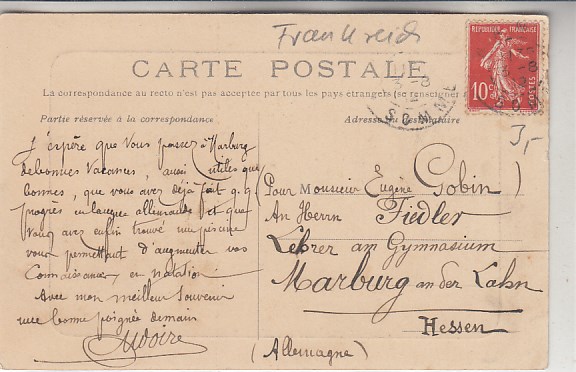 Frankreich
CARTE POSTALE
La correspondance au recto n'est pas acceptée par tous les pays étrangers (se renseigner
Partie réservée à la correspondance
Adresse du destinataire
REPUBLIQUE FRANÇAISE
10c
POSTES
3,-
J'espère que vous passez à Marburg
de bonnes vacances, aussi utiles que
bonnes, que vous avez déjà fait q.q.
progrès en langue allemande et que
vous avez enfin trouvé une piscine
vous permettant d'augmenter vos
connaissances en natation.
Avec mon meilleur souvenir
une bonne poignée de main
(Pour Monsieur Eugène Gobin)
An Herrn Fiedler
Lehrer am Gymnasium
Marburg an der Lahn
Hessen
(Allemagne)